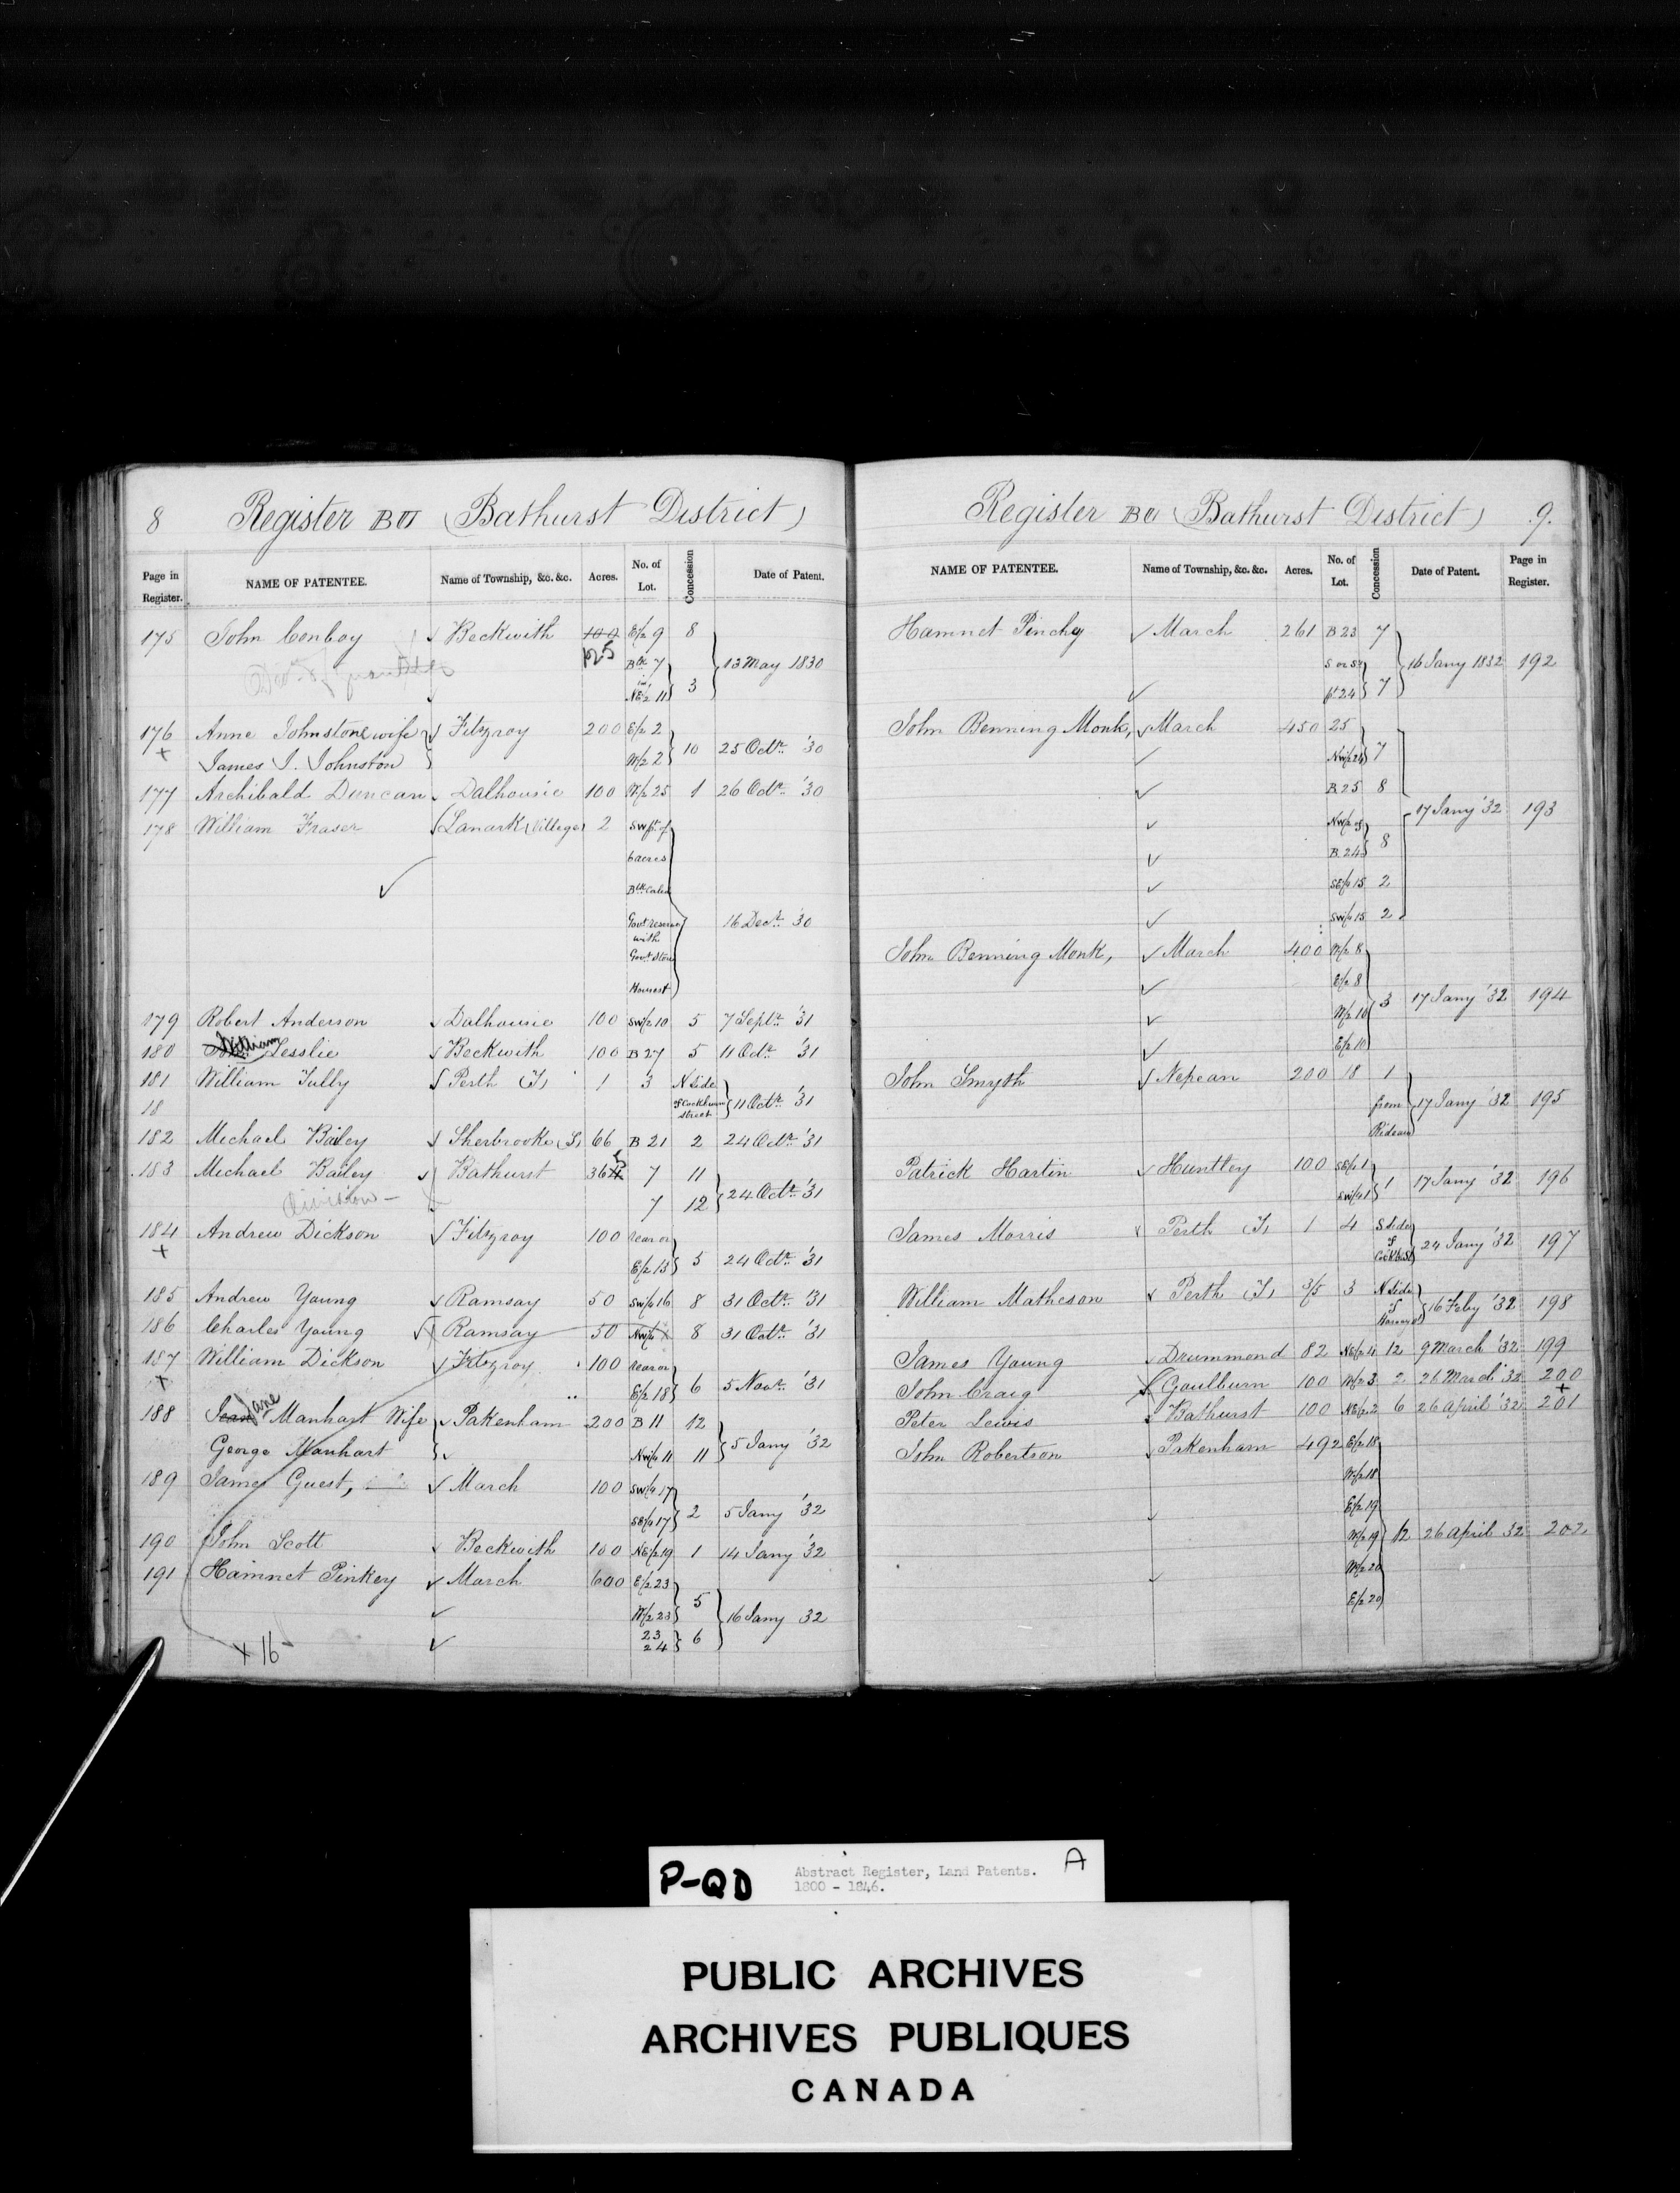 8 Register BO (Bathurst District)
Page in Register. NAME OF PATENTEE. Name of Township, &c. &c. Acres. No. of Lot. Concession Date of Patent.
175 John Conboy Beckwith 100 E/2 9 8
125 Blk 7 13 May 1830
NE/2 11 3
176 Anne Johnstone wife Fitzroy 200 E/2 2
+ James J. Johnston W/2 2 10 25 Octr. '30
177 Archibald Duncan Dalhousie 100 W/2 25 1 26 Octr. '30
178 William Fraser Lanark (Village) 2 SW pt. of
6 acres
Blk
Govt. reserve 16 Decr. '30
with
Govt. Store
House
179 Robert Anderson Dalhousie 100 SW/2 10 5 7 Septr. '31
180 William Lesslie Beckwith 100 B 27 5 11 Octr. '31
181 William Tully Perth (T) 1 3 N side
18 of Cockburn 11 Octr. '31
street
182 Michael Bailey Sherbrooke (S) 66 B 21 2 24 Octr. '31
183 Michael Bailey Bathurst 365 7 11
division - 7 12 24 Octr. '31
184 Andrew Dickson Fitzroy 100 rear or
+ E/2 13 5 24 Octr. '31
185 Andrew Young Ramsay 50 SW/4 16 8 31 Octr. '31
186 Charles Young Ramsay 50 NW/4 8 31 Octr. '31
187 William Dickson Fitzroy 100 rear or
+ E/2 18 6 5 Novr. '31
188 Jean Jane Manhart Wife Pakenham 200 B 11 12
George Manhart NW/4 11 11 5 Jany '32
189 James Guest, March 100 SW/4 17
SE/4 17 2 5 Jany '32
190 John Scott Beckwith 100 NE/2 19 1 14 Jany '32
191 Hamnet Pinkey March 600 E/2 23
W/2 23 5 16 Jany 32
23
24 6
+ 16 -
Register BO (Bathurst District) 9.
NAME OF PATENTEE. Name of Township, &c. &c. Acres. No. of Lot. Concession Date of Patent. Page in Register.
Hamnet Pinchy March 261 B 23 7
S or S 16 Jany 1832 192
24 7
John Benning Monk, March 450 25
NW/2 24 7
B 25 8
17 Jany '32 193
NW/2 of
B. 24 8
SE/4 15 2
SW/4 15 2
John Benning Monk, March 400 W/2 8
E/2 8
W/2 10 3 17 Jany '32 194
E/2 10
John Smyth Nepean 200 18 1
from 17 Jany '32 195
Rideau
Patrick Hartin Huntley 100 SE/4 1
SW/4 1 1 17 Jany '32 196
James Morris Perth (T) 1 4 S side
of 24 Jany '32 197
Cockb. St
William Matheson Perth (T) 3/5 3 N side
of 16 Feby '32 198
James Young Drummond 82 NE/2 4 12 9 March '32 199
John Craig Goulburn 100 W/2 3 2 26 March '32 200
+
Peter Lewis Bathurst 100 NE/2 2 6 26 April '32 201
John Robertson Pakenham 492 E/2 18
W/2 18
E/2 19
W/2 19 12 26 April 32 202
W/2 20
E/2 20
P-QD Abstract Register, Land Patents. A
1800 - 1846.
PUBLIC ARCHIVES
ARCHIVES PUBLIQUES
CANADA